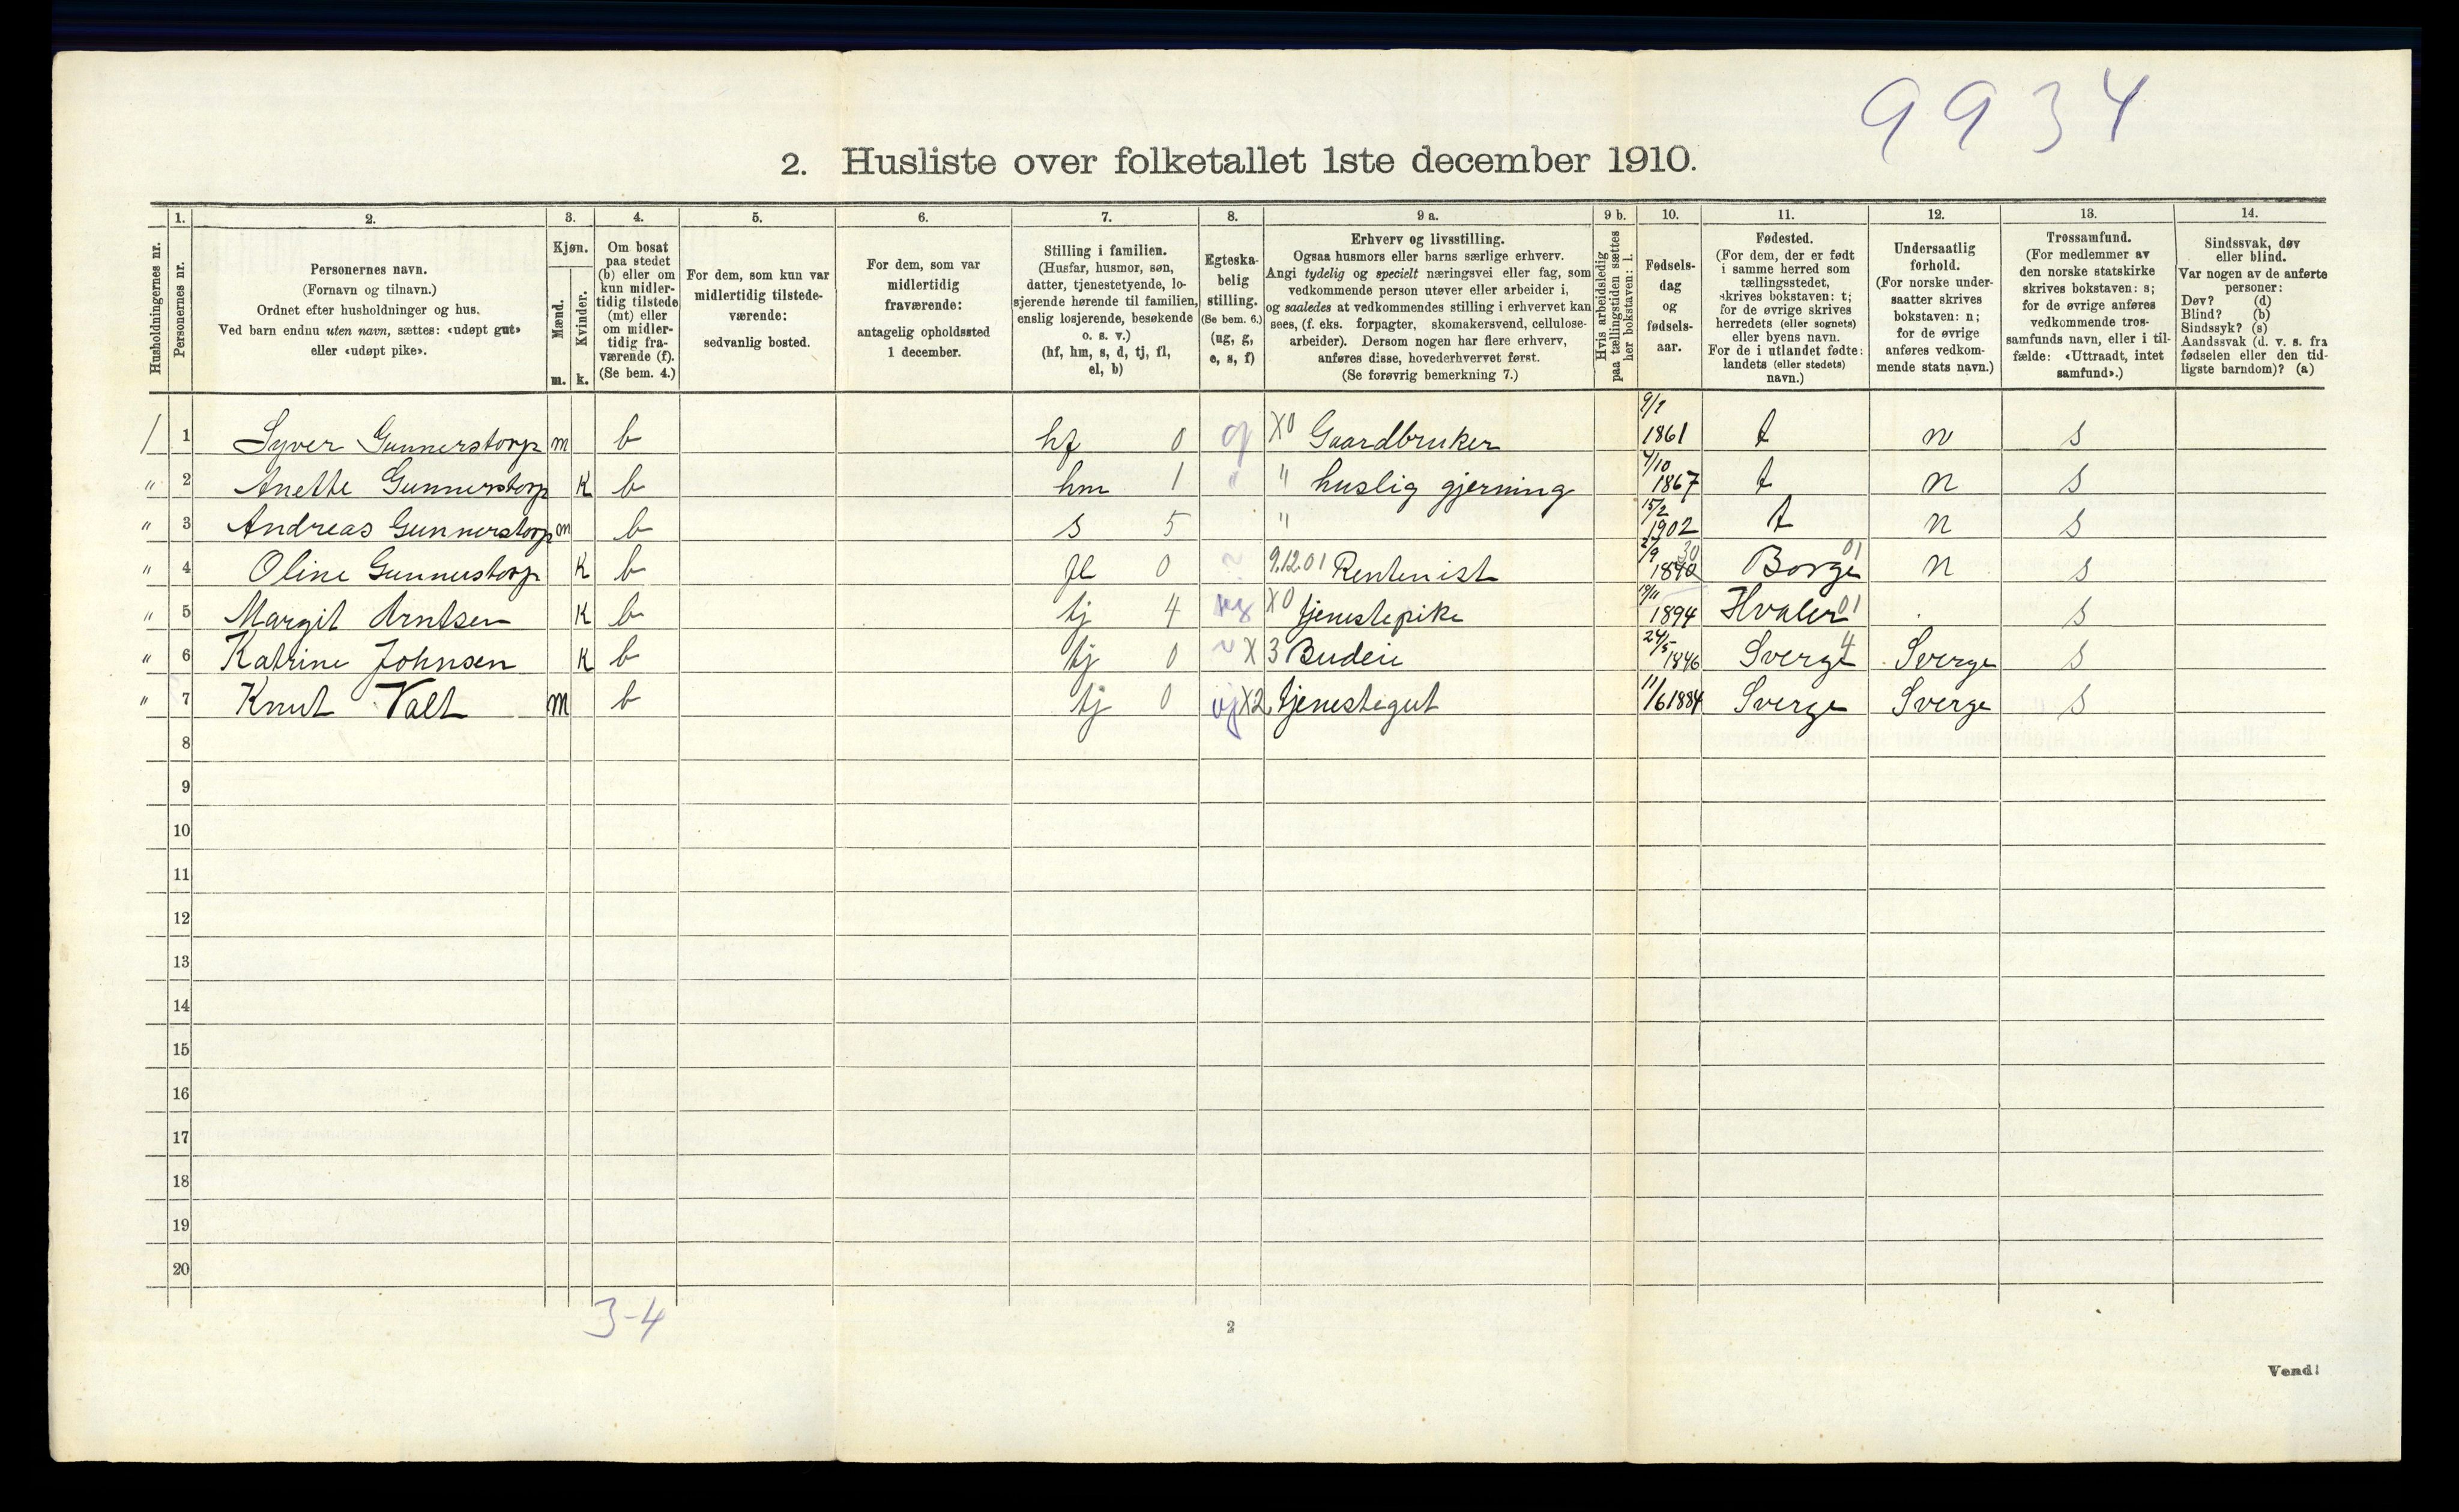 9934
2. Husliste over folketallet 1ste december 1910.
Husholdningernes nr.
1. Personernes nr.
2. Personernes navn.
(Fornavn og tilnavn.)
Ordnet efter husholdninger og hus.
Ved barn endnu uten navn, sættes: «udøpt gut»
eller «udøpt pike».
3. Kjøn.
Mænd. m.
Kvinder. k.
4. Om bosat
paa stedet
(b) eller om
kun midler-
tidig tilstede
(mt) eller
om midler-
tidig fra-
værende (f).
(Se bem. 4.)
5. For dem, som kun var
midlertidig tilstede-
værende:
sedvanlig bosted.
6. For dem, som var
midlertidig
fraværende:
antagelig opholdssted
1 december.
7. Stilling i familien.
(Husfar, husmor, søn,
datter, tjenestetyende, lo-
sjerende hørende til familien,
enslig losjerende, besøkende
o. s. v.)
(hf, hm, s, d, tj, fl,
el, b)
8. Egteska-
belig
stilling.
(Se bem. 6.)
(ug, g,
e, s, f)
9 a. Erhverv og livsstilling.
Ogsaa husmors eller barns særlige erhverv.
Angi tydelig og specielt næringsvei eller fag, som
vedkommende person utøver eller arbeider i,
og saaledes at vedkommendes stilling i erhvervet kan
sees, (f. eks. forpagter, skomakersvend, cellulose-
arbeider). Dersom nogen har flere erhverv,
anføres disse, hovederhvervet først.
(Se forøvrig bemerkning 7.)
9 b. Hvis arbeidsledig
paa tællingstiden sættes
her bokstaven: l.
10. Fødsels-
dag
og
fødsels-
aar.
11. Fødested.
(For dem, der er født
i samme herred som
tællingsstedet,
skrives bokstaven: t;
for de øvrige skrives
herredets (eller sognets)
eller byens navn.
For de i utlandet fødte:
landets (eller stedets)
navn.)
12. Undersaatlig
forhold.
(For norske under-
saatter skrives
bokstaven: n;
for de øvrige
anføres vedkom-
mende stats navn.)
13. Trossamfund.
(For medlemmer av
den norske statskirke
skrives bokstaven: s;
for de øvrige anføres
vedkommende tros-
samfunds navn, eller i til-
fælde: «Uttraadt, intet
samfund».)
14. Sindssvak, døv
eller blind.
Var nogen av de anførte
personer:
Døv? (d)
Blind? (b)
Sindssyk? (s)
Aandssvak (d. v. s. fra
fødselen eller den tid-
ligste barndom)? (a)
1 Syver Gunnerstorp m b hf 0 g X0 Gaardbruker 9/9 1861 t n s
" 2 Anette Gunnerstorp K b hm 1 " " huslig gjerning 4/10 1867 t n s
" 3 Andreas Gunnerstorp m b s 5 " 15/2 1902 t n s
" 4 Oline Gunnerstorp K b fl 0 9.12.01 Rentenist 30 Borge 01 n s
" 5 Margit Arntsen K b tj 4 ug X0 tjenestepike 19/11 1894 Hvaler 01 s
" 6 Katrine Johnsen K b tj 0 X3 Budeie 24/5 1846 Sverge 4 Sverge s
" 7 Knut Valt m b tj 0 X2 tjenestegut 11/6 1884 Sverge Sverge s
8
9
10
11
12
13
14
15
16
17
18
19
20
3-4
2
Vend!